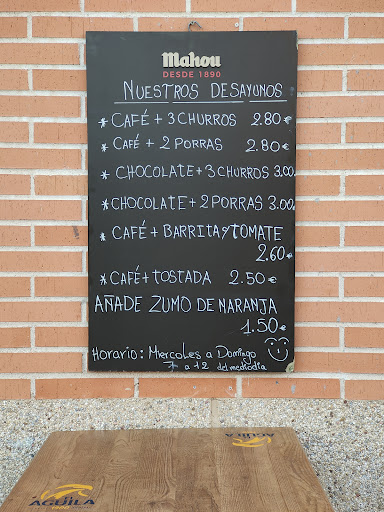 Mahou
DESDE 1890
NUESTROS DESAYUNOS
* CAFÉ + 3 CHURROS 2.80€
* CAFÉ + 2 PORRAS 2.80€
* CHOCOLATE + 3 CHURROS 3.00
* CHOCOLATE + 2 PORRAS 3.00€
* CAFÉ + BARRITA Y TOMATE
2.60€
* CAFÉ + TOSTADA 2.50€
AÑADE ZUMO DE NARANJA
1.50€
Horario: Miercoles a Domingo
a 12 del mediodia
AGUILA
AGUILA